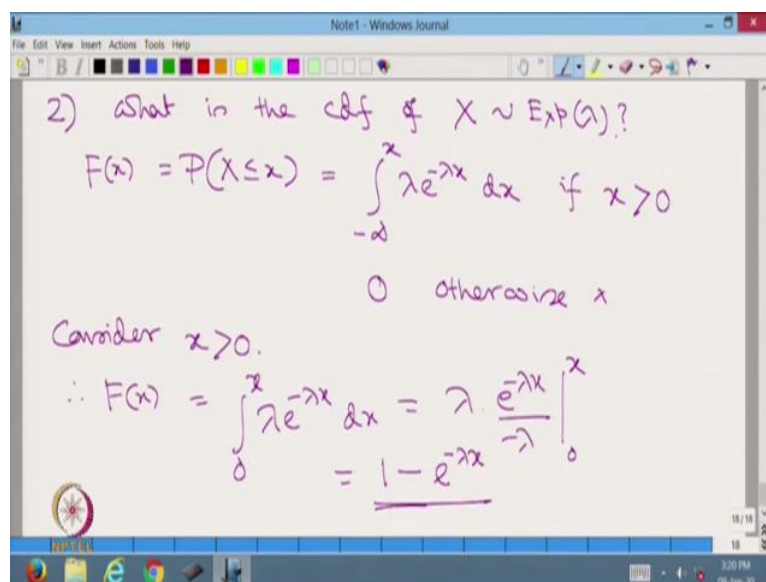 Note1 - Windows Journal
File Edit View Insert Actions Tools Help
B I
2) What is the cdf of X ~ Exp(λ)?
F(x) = P(X ≤ x) = ∫_{-∞}^{x} λe^{-λx} dx if x > 0
0 otherwise x
Consider x > 0.
∴ F(x) = ∫_{0}^{x} λe^{-λx} dx = λ · e^{-λx}/-λ |_{0}^{x}
= 1 - e^{-λx}
NPTEL
18/18
18
3:20 PM